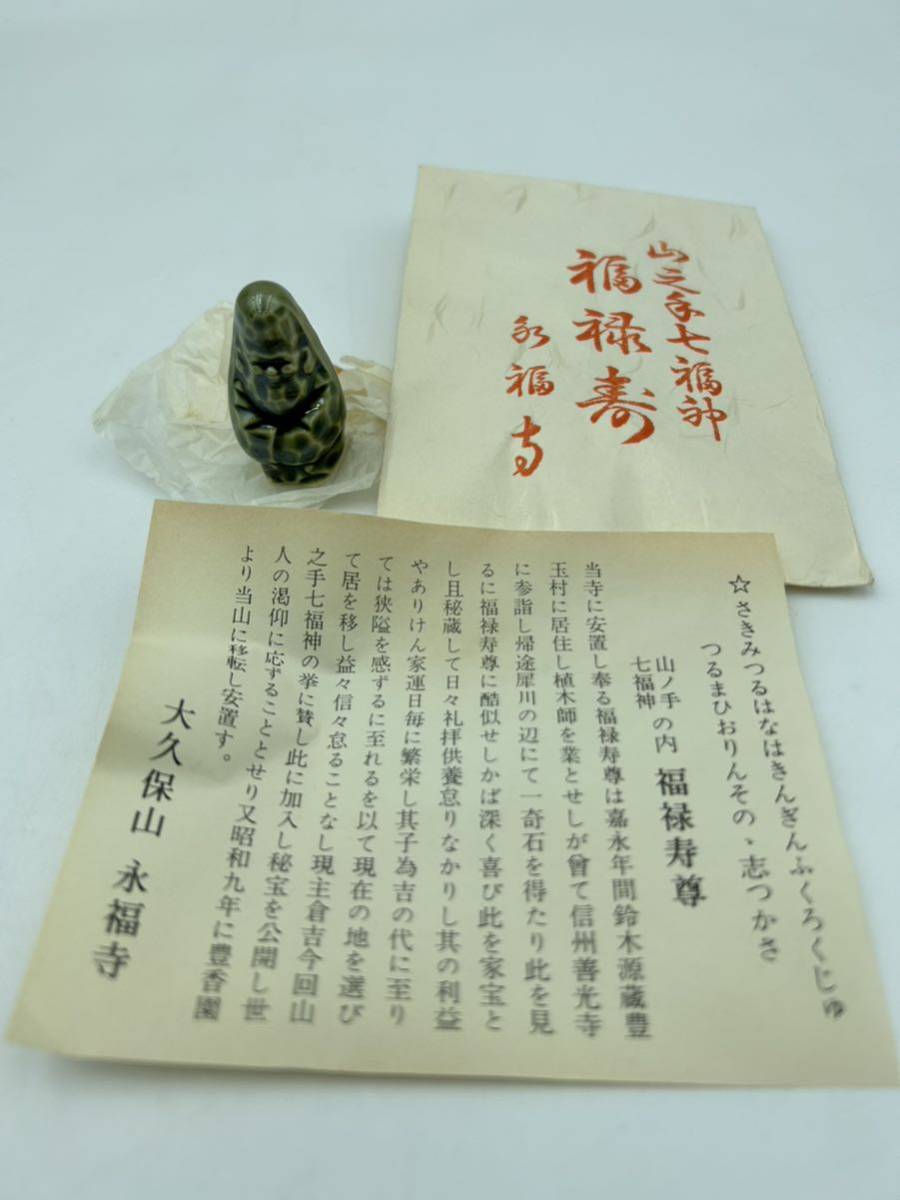 山之手七福神
福禄寿
永福寺
☆さきみつるはなはきんぎんふくろくじゅ
つるまひおりんその、志つかさ
山ノ手
七福神
の内 福禄寿尊
当寺に安置し奉る福禄寿尊は嘉永年間鈴木源蔵豊
玉村に居住し植木師を業とせしが曾て信州善光寺
に参詣し帰途犀川の辺にて一奇石を得たり此を見
るに福禄寿尊に酷似せしかば深く喜び此を家宝と
し且秘蔵して日々礼拝供養怠りなかりし其の利益
やありけん家運日毎に繁栄し其子為吉の代に至り
ては狭隘を感ずるに至れるを以て現在の地を選び
て居を移し益々信々怠ることなし現主倉吉今回山
之手七福神の挙に賛し此に加入し秘宝を公開し世
人の渇仰に応ずることとせり又昭和九年に豊香園
より当山に移転し安置す。
大久保山 永福寺